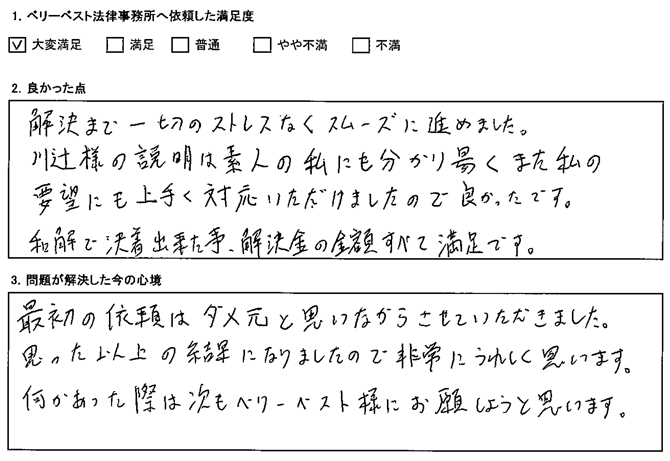 1. ベリーベスト法律事務所へ依頼した満足度
☑ 大変満足 □ 満足 □ 普通 □ やや不満 □ 不満
2. 良かった点
解決まで一切のストレスなくスムーズに進めました。
川辻様の説明は素人の私にも分かり易くまた私の
要望にも上手く対応いただけましたので良かったです。
和解で決着出来た事、解決金の金額すべて満足です。
3. 問題が解決した今の心境
最初の依頼はダメ元と思いながらさせていただきました。
思った以上の結果になりましたので非常にうれしく思います。
何かあった際は次もベリーベスト様にお願しようと思います。